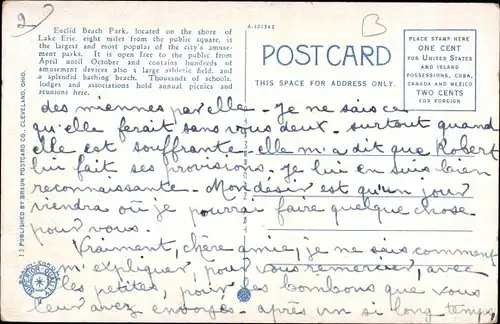 2
B
Euclid Beach Park, located on the shore of
Lake Erie, eight miles from the public square, is
the largest and most popular of the city's amuse-
ment parks. It is open free to the public from
April until October and contains hundreds of
amusement devices also a large athletic field, and
a splendid bathing beach. Thousands of schools,
lodges and associations hold annual picnics and
reunions here.
A-101542
POST CARD
THIS SPACE FOR ADDRESS ONLY.
PLACE STAMP HERE
ONE CENT
FOR UNITED STATES
AND ISLAND
POSSESSIONS, CUBA,
CANADA AND MEXICO
TWO CENTS
FOR FOREIGN
PUBLISHED BY BRAUN POSTCARD CO., CLEVELAND, OHIO.
des miennes par elle - Je ne sais ce
qu'elle ferait sans vous deux - surtout quand
elle est souffrante - elle m'a dit que Robert
lui fait ses provisions. Je lui en suis bien
reconnaissante - Mon désir est qu'un jour
viendra où je pourrai faire quelque chose
pour vous.
Vraiment, chère amie, je ne sais comment
m'expliquer, pour vous remercier, avec
les petites, pour les bombons que vous
leur avez envoyés - après un si long temps,